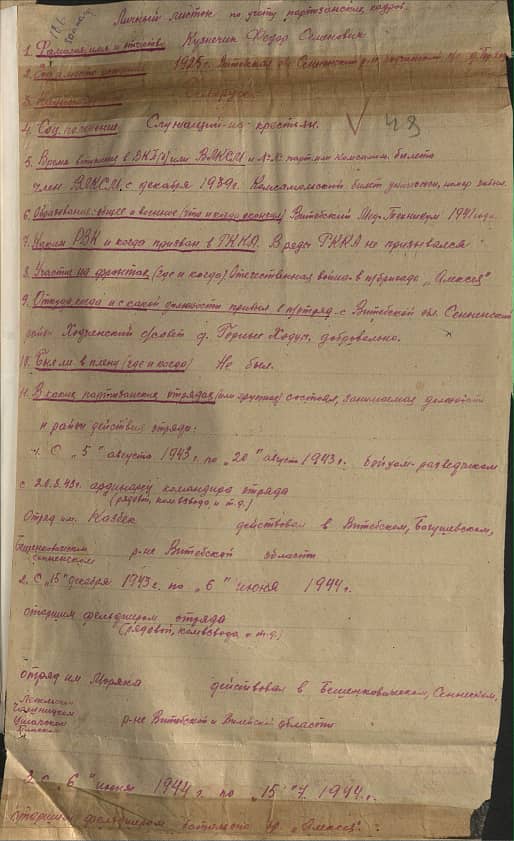 Личный листок по учету партизанских кадров.
1. Фамилия, имя и отчество Кузнечик Федор Семенович
2. Год и место рождения 1925г. Витебская обл. Сенненский р-н
3. Белорусс
4. Соц. положение Служащий из крестьян.
43
5. Время вступления в ВКП(б) или ВЛКСМ и №№ парт. или комсомол. билета
член ВЛКСМ с декабря 1939г. Комсомольский билет уничтожен, номер
6. Образование: общее и военное (что и когда окончил) Витебский Мед. Техникум 1941 года.
7. Каким РВК и когда призван в РККА. В ряды РККА не призывался
8. Участие на фронтах (где и когда) Отечественная война в п/бригаде „Алексея"
9. Откуда, когда и с какой должности прибыл в п/отряд с Витебской обл. Сенненский
Ходченский с/совет д. Горные Ходцы, добровольно.
10. Был ли в плену (где и когда) Не был.
11. В каких партизанских отрядах (или группах) состоял, занимаемая должность
и район действия отряда:
1. С „5" августа 1943г. по „20" август 1943г. бойцом-разведчиком
с 20.8.43г. командира отряда
(рядовой, комвзвода и т.д.)
Отряд им. Казбек действовал в Витебском, Богушевском,
Бешенковичском
Сенненском р-не Витебской области.
2. С „15" декабря 1943г. по „6" июня 1944г.
старшим фельдшером отряда
(рядовой, комвзвода и т.д.)
отряд им Моряка действовал в Бешенковичском, Сенненском,
Лепельском
Чашникском
Ушачском
р-не Витебской и Вилейской области
3. С „6" июня 1944г. по „15" 7. 1944г.
старшим фельдшером бр. „Алексея".